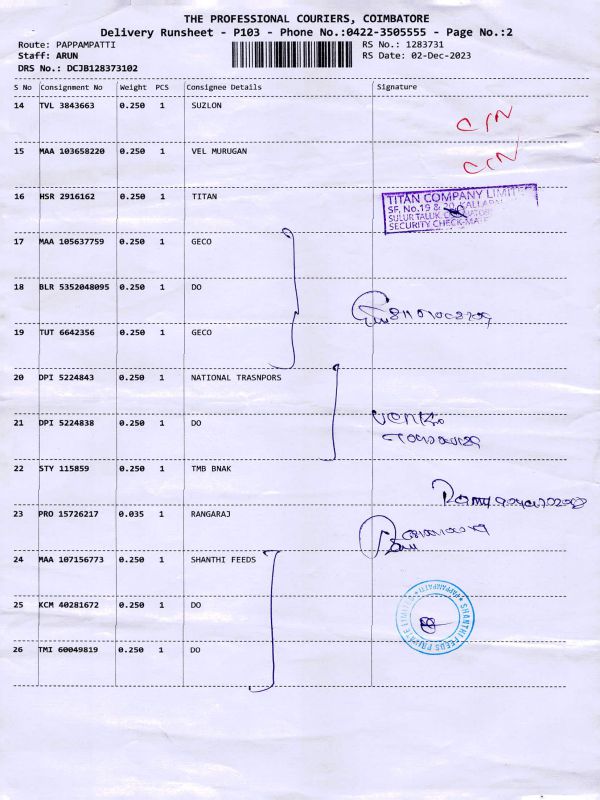 THE PROFESSIONAL COURIERS, COIMBATORE
Delivery Runsheet - P103 - Phone No.:0422-3505555 - Page No.:2
Route: PAPPAMPATTI RS No.: 1283731
Staff: ARUN RS Date: 02-Dec-2023
DRS No.: DCJB128373102
S No Consignment No Weight PCS Consignee Details Signature
14 TVL 3843663 0.250 1 SUZLON
15 MAA 103658220 0.250 1 VEL MURUGAN
16 HSR 2916162 0.250 1 TITAN
TITAN COMPANY LIMITED
SF. No.19 & 20
SULUR TALUK
SECURITY CHECK
17 MAA 105637759 0.250 1 GECO
18 BLR 5352048095 0.250 1 DO
19 TUT 6642356 0.250 1 GECO
20 DPI 5224843 0.250 1 NATIONAL TRASNPORS
21 DPI 5224838 0.250 1 DO
22 STY 115859 0.250 1 TMB BNAK
23 PRO 15726217 0.035 1 RANGARAJ
24 MAA 107156773 0.250 1 SHANTHI FEEDS
25 KCM 40281672 0.250 1 DO
SHANTHI FEEDS PRIVATE LIMITED * PAPPAMPATTI *
26 TMI 60049819 0.250 1 DO